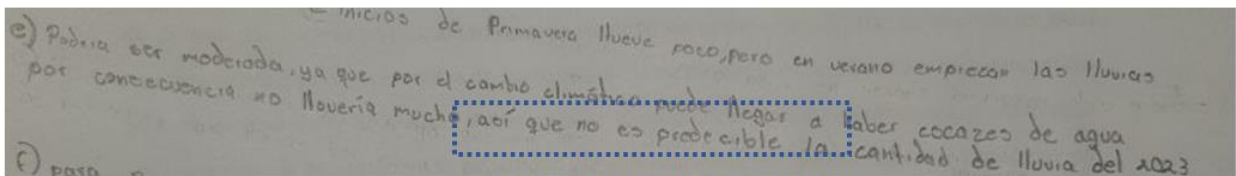 inicios de Primavera llueve poco, pero en verano empiezan las lluvias
e) Podria ser moderada, ya que por el cambio climático puede llegar a haber escazes de agua
por concecuencia no llovería mucho, así que no es predecible la cantidad de lluvia del 2023
f) pasa